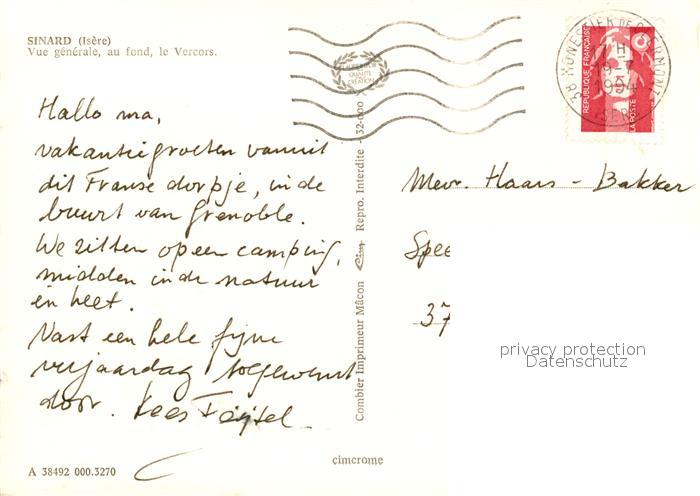 SINARD (Isère)
Vue générale, au fond, le Vercors.
Hallo ma,
vakantiegroeten vanuit
dit Franse dorpje, in de
buurt van Grenoble.
We zitten op een camping,
midden in de natuur
en heet.
Vast een hele fijne
verjaardag toegewenst
door. Kees
Combier Imprimeur Mâcon Cim Repro. Interdite - 32-000
SUPERIOR
QUALITÉ
CRÉATION
38 MONESTIER DE CLERMONT
H
19-7
1994
ISERE
REPUBLIQUE FRANÇAISE
LA POSTE
Mevr. Haars - Bakker
Spee
37
privacy protection
Datenschutz
cimcrome
A 38492 000.3270